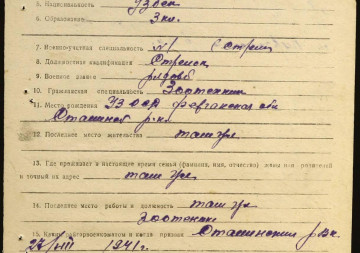 5. Национальность Узбек
6. Образование 3 кл.
7. Военно-учетная специальность №1 Стрелк
8. Должностная квалификация Стрелок
9. Военное звание рядовой
10. Гражданская специальность Зоотехник
11. Место рождения УзССР Ферганская обл
Сталинск р-н.
12. Последнее место жительства
13. Где проживает в настоящее время семья (фамилия, имя, отчество) жены или родителей
и точный их адрес
14. Последнее место работы и должность
Зоотехник
15. Каким райгорвоенкоматом и когда призван Сталинским рвк.
1941 г.